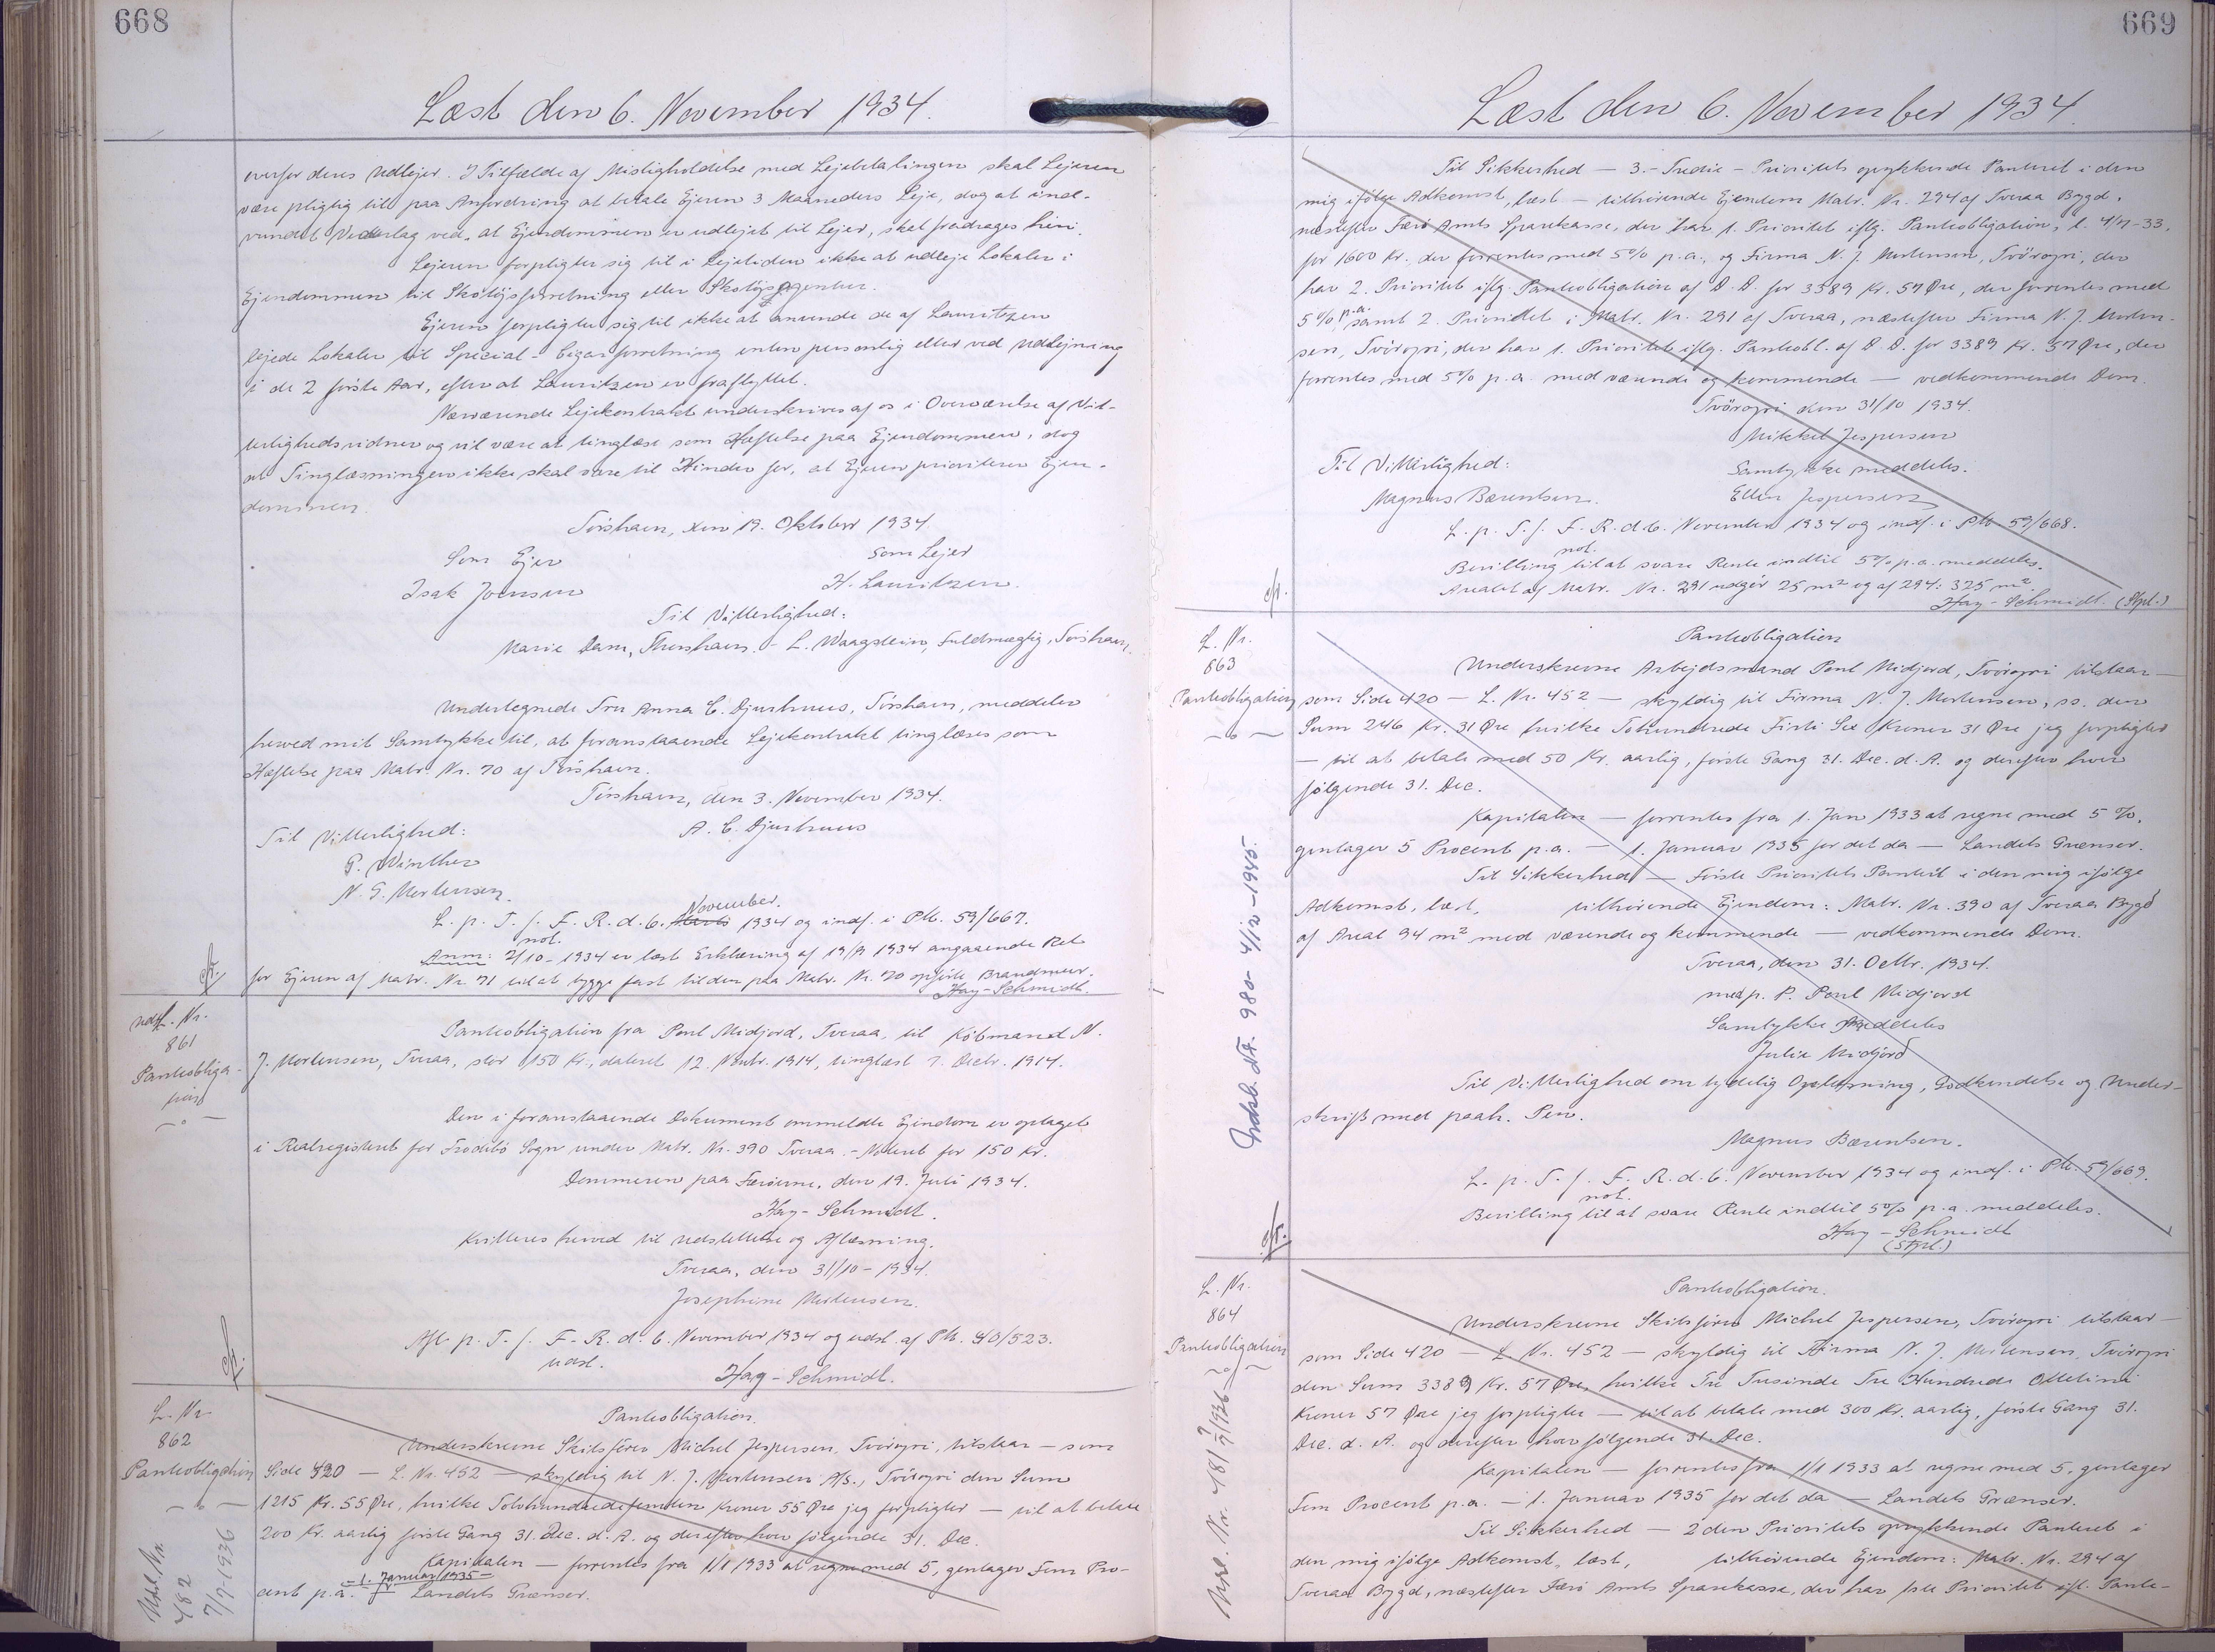 668
Læst den 6. November 1934.
overfor deres Udlejer. I Tilfælde af Misligholdelse med Lejebetalingen skal Lejeren
være pligtig til paa Anfordring at betale Ejeren 3 Maaneders Leje, dog at ind-
vundet Vederlag ved, at Ejendommen er udlejet til Lejer, skal fradrages heri.
Lejeren forpligter sig til i Lejetiden ikke at udleje Lokaler i
Ejendommen til Skotøjsforretning eller Skotøjsagentur.
Ejeren forpligter sig til ikke at anvende de af Lauritzen
lejede Lokaler til Special-Cigarforretning enten personlig eller ved Udlejning
i de 2 første Aar, efter at Lauritzen er fraflyttet.
Nærværende Lejekontrakt underskrives af os i Overværelse af Vit-
terlighedsvidner og vil være at tinglæse som Hæftelse paa Ejendommen, dog
at Tinglæsningen ikke skal være til Hinder for, at Ejeren prioriterer Ejen-
dommen.
Tórshavn, den 19. Oktober 1934
Som Ejer
Som Lejer
Isak Joensen
H. Lauritzen.
Til Vitterlighed:
Marie Dam, Thorshavn. - L. Waagstein, Fuldmægtig, Tórshavn.
Undertegnede Fru Anna C. Djurhuus, Tórshavn, meddeler
herved mit Samtykke til, at foranstaaende Lejekontrakt tinglæses som
Hæftelse paa Matr. Nr. 70 af Tórshavn.
Tórshavn, den 3. November 1934.
Til Vitterlighed:
A. C. Djurhuus
P. Winther
N. G. Mortensen.
November.
L. p. T. f. F. R. d. 6. 1934 og indf. i Ptb. 59/667.
not.
Anm: 2/10-1934 er læst Erklæring af 1934 angaaende Ret
for Ejeren af Matr. Nr. 71 til at bygge fast til den paa Matr. Nr. 70 opførte Brandmur.
Hay-Schmidt.
Udsl. Nr.
861
Pantobliga-
tion
Pantobligation fra Poul Midjord, Tveraa, til Købmand N.
J. Mortensen, Tveraa, stor 150 Kr., dateret 12. Novbr. 1914, tinglæst 7. Decbr. 1914.
Den i foranstaaende Dokument ommeldte Ejendom er optaget
i Realregisteret for Frodebø Sogn under Matr. Nr. 390 Tveraa. - Noteret for 150 Kr.
Dommeren paa Færøerne, den 19. Juli 1934.
Hay-Schmidt.
Kvitteres herved til Udslettelse og Aflæsning.
Tveraa, den 31/10-1934.
Josephine Mortensen.
Afl. p. T. f. F. R. d. 6. November 1934 og udsl. af Ptb. 40/523.
udsl.
Hay-Schmidt.
L. Nr.
862
Pantobligation
Pantobligation.
Underskrevne Skibsfører Michel Jespersen, Tvöroyri, tilstaar - som
Side 420 - L. Nr. 452 - skyldig til N. J. Mortensen A/S., Tvöroyri den Sum
1215 Kr. 55 Øre, hvilke Tolvhundredefemten Kroner 55 Øre jeg forpligter - til at betale
200 Kr. aarlig første Gang 31. Dec. d. A. og derefter hver følgende 31. Dec.
Kapitalen - forrentes fra 1/1 1933 at regne med 5, gentager Fem Pro-
- 1. Januar 1935 -
cent p.a. Landets Grænser.
Udsl. Nr.
482
7/7-1936
669
Læst den 6. November 1934.
Til Sikkerhed - 3.-Tredie-Prioritets oprykkende Panteret i den
mig ifølge Adkomst, læst - tilhørende Ejendom Matr. Nr. 294 af Tveraa Bygd,
næstefter Færø Amts Sparekasse, der har 1. Prioritet iflg. Pantobligation, l. 4/7-33,
for 1600 Kr. der forrentes med 5% p.a., og Firma N. J. Mortensen, Tvöroyri, der
har 2. Prioritet iflg. Pantobligation af D.D. for 3389 Kr. 57 Øre, der forrentes med
5% p.a. samt 2. Prioritet i Matr. Nr. 291 af Tveraa, næstefter Firma N. J. Morten-
sen, Tvöroyri, der har 1. Prioritet iflg. Pantobl. af D.D. for 3389 Kr. 57 Øre, der
forrentes med 5% p.a. med værende og kommende - vedkommende Dom.
Tvöroyri den 31/10 1934.
Mikkel Jespersen
Til Vitterlighed:
Samtykke meddeles.
Magnus Bærentsen.
Ellen Jespersen
L. p. T. f. F. R. d. 6. November 1934 og indf. i Ptb 59/668.
not.
Bevilling til at svare Rente indtil 5% p.a. meddeles.
Arealet af Matr. Nr. 291 udgør 25 m² og af 294: 325 m².
Hay-Schmidt. (Stpl.)
L. Nr.
863
Pantobligation
Pantobligation
Underskrevne Arbejdsmand Poul Midjord, Tvöroyri tilstaar -
som Side 420 - L. Nr. 452 - skyldig til Firma N. J. Mortensen, ss. den
Sum 246 Kr. 31 Øre hvilke Tohundrede Firti Sex Kroner 31 Øre jeg forpligter
- til at betale med 50 Kr. aarlig, første Gang 31. Dec. d. A. og derefter hver
følgende 31. Dec.
Kapitalen - forrentes fra 1. Jan 1933 at regne med 5 %,
gentager 5 Procent p.a. - 1. Januar 1935 for det da - Landets Grænser.
Til Sikkerhed - Første Prioritets Panteret i den mig ifølge
Adkomst, læst, tilhørende Ejendom: Matr. Nr. 390 af Tveraa Bygd
af Areal 94 m² med værende og kommende - vedkommende Dom.
Tveraa, den 31. Octbr. 1934.
m. p. P. Poul Midjord
Samtykke meddeles
Julia Midjord
Til Vitterlighed om tydelig Oplæsning, Godkendelse og Under-
skrift med paah. Pen.
Magnus Bærentsen.
L. p. T. f. F. R. d. 6. November 1934 og indf. i Ptb. 59/669.
not.
Bevilling til at svare Rente indtil 5% p.a. meddeles.
Hay-Schmidt
(Stpl.)
Udsl. Nr. 980 4/12-1945.
L. Nr.
864
Pantobligation
Pantobligation.
Underskrevne Skibsfører Michel Jespersen, Tvöroyri tilstaar -
som Side 420 - L. Nr. 452 - skyldig til Firma N. J. Mortensen, Tvöroyri
den Sum 3389 Kr. 57 Øre, hvilke Tre Tusinde Tre Hundrede Ottetini
Kroner 57 Øre jeg forpligter - til at betale med 300 Kr. aarlig, første Gang 31.
Dec. d. A. og derefter hver følgende 31. Dec.
Kapitalen - forrentes fra 1/1 1933 at regne med 5, gentager
Fem Procent p.a. - 1. Januar 1935 for det da - Landets Grænser.
Til Sikkerhed - 2den Prioritets oprykkende Panteret i
den mig ifølge Adkomst, læst, tilhørende Ejendom: Matr. Nr. 294 af
Tveraa Bygd, næstefter Færø Amts Sparekasse, der har 1ste Prioritet ifl. Pante-
Udsl. Nr. 481 7/7 1936